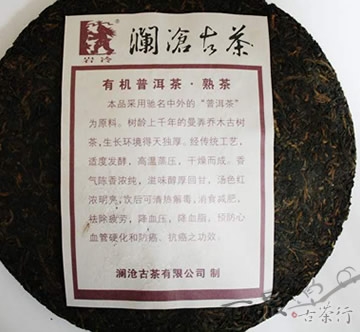 澜沧古茶
®
岩泠
有机普洱茶·熟茶
本品采用驰名中外的“普洱茶”
为原料。树龄上千年的曼弄乔木古树
茶,生长环境得天独厚。经传统工艺,
适度发酵,高温蒸压,干燥而成。香
气陈香浓纯,滋味醇厚回甘,汤色红
浓明亮,饮后可清热解毒,消食减肥,
祛除疲劳,降血压,降血脂,预防心
血管硬化和防癌、抗癌之功效。
澜沧古茶有限公司 制
古茶行